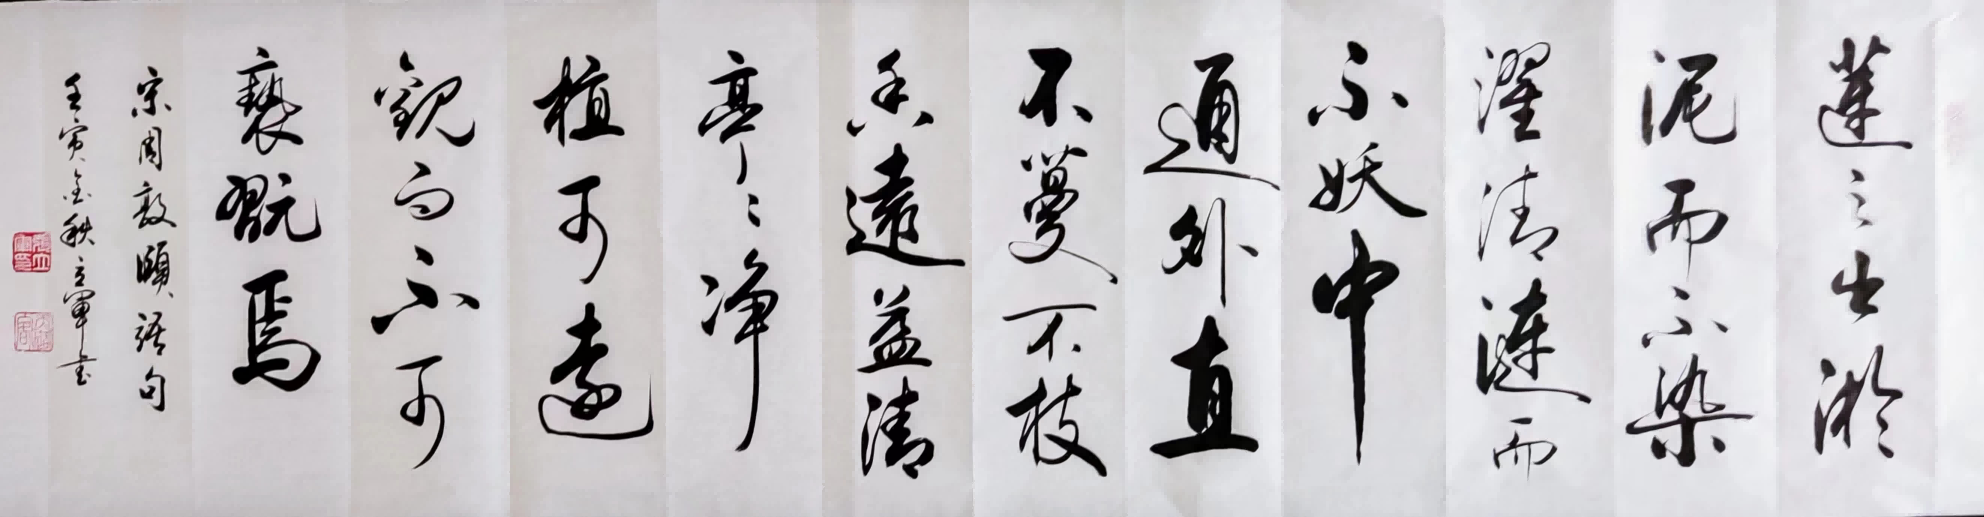 蓮之出淤
泥而不染
濯清漣而
不妖中
通外直
不蔓不枝
香遠益清
亭〻净
植可遠
觀而不可
褻翫焉
宋周敦頤語句
壬寅金秋立軍书